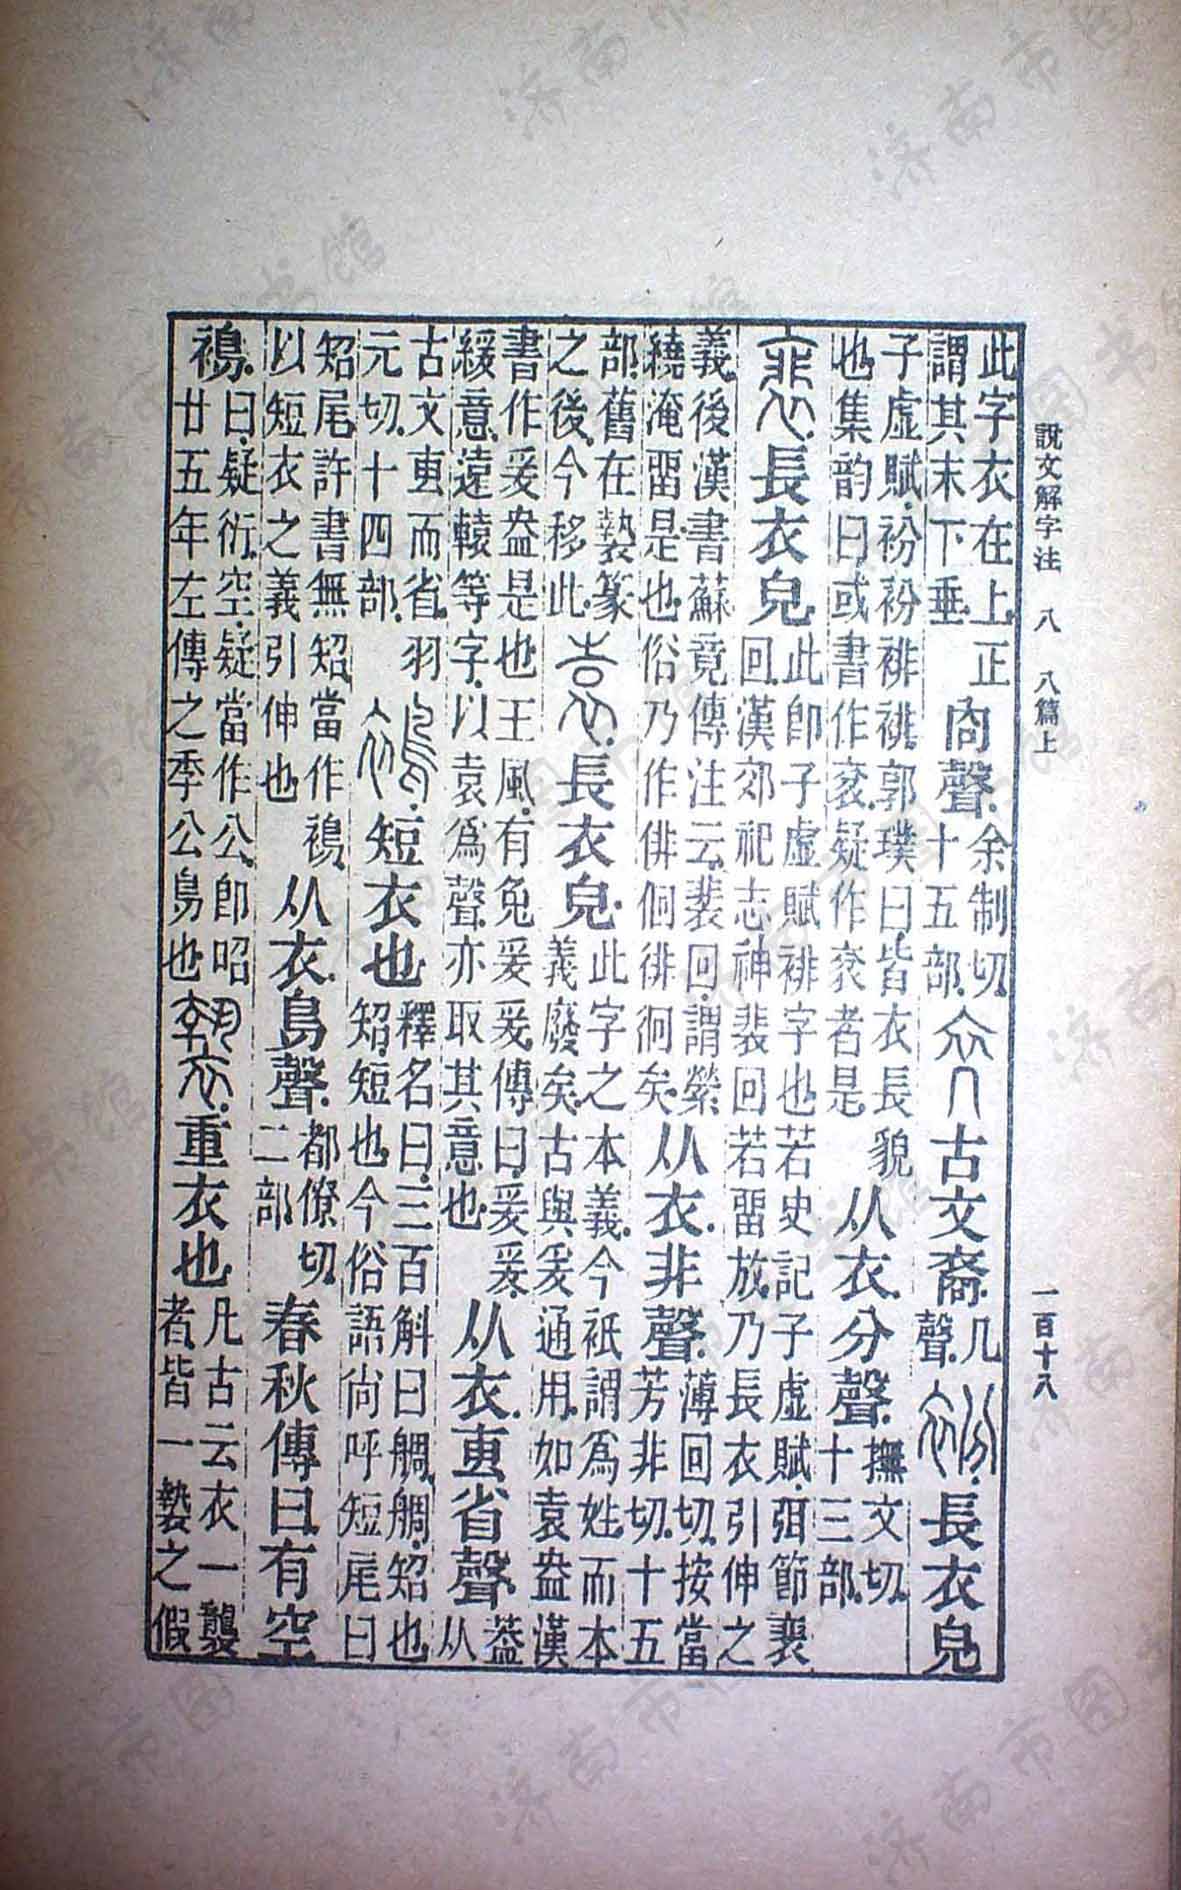 說文解字注 八 八篇上 一百十八
此字衣在上正
謂其末下垂
㕯聲
余制切
十五部
古文裔
几
聲
長衣皃
子虛賦衯衯裶裶郭璞曰皆衣長貌
也集韵曰或書作衮疑作衮者是
从衣分聲
撫文切
十三部
長衣皃
此卽子虛賦裶字也若史記子虛賦弭節裵
回漢郊祀志神裴回若畱放乃長衣引伸之
義後漢書蘇竟傳注云裴回謂縈
繞淹畱是也俗乃作俳佪徘徊矣
从衣非聲
薄回切按當
芳非切十五
部舊在褺篆
之後今移此
長衣皃
此字之本義今衹謂爲姓而本
義廢矣古與爰通用如袁盎漢
書作爰盎是也王風有兔爰爰傳曰爰爰
緩意遠轅等字以袁爲聲亦取其意也
从衣叀省聲
蓋
从
古文叀而省羽
元切十四部
短衣也
釋名曰三百斛曰䑬䑬䂏也
䂏短也今俗語尙呼短尾曰
䂏尾許書無䂏當作䙚
以短衣之義引伸也
从衣鳥聲
都僚切
二部
春秋傳曰有空
䙚
曰疑衍空疑當作公卽昭
廿五年左傳之季公鳥也
重衣也
凡古云衣一襲
者皆一褺之假